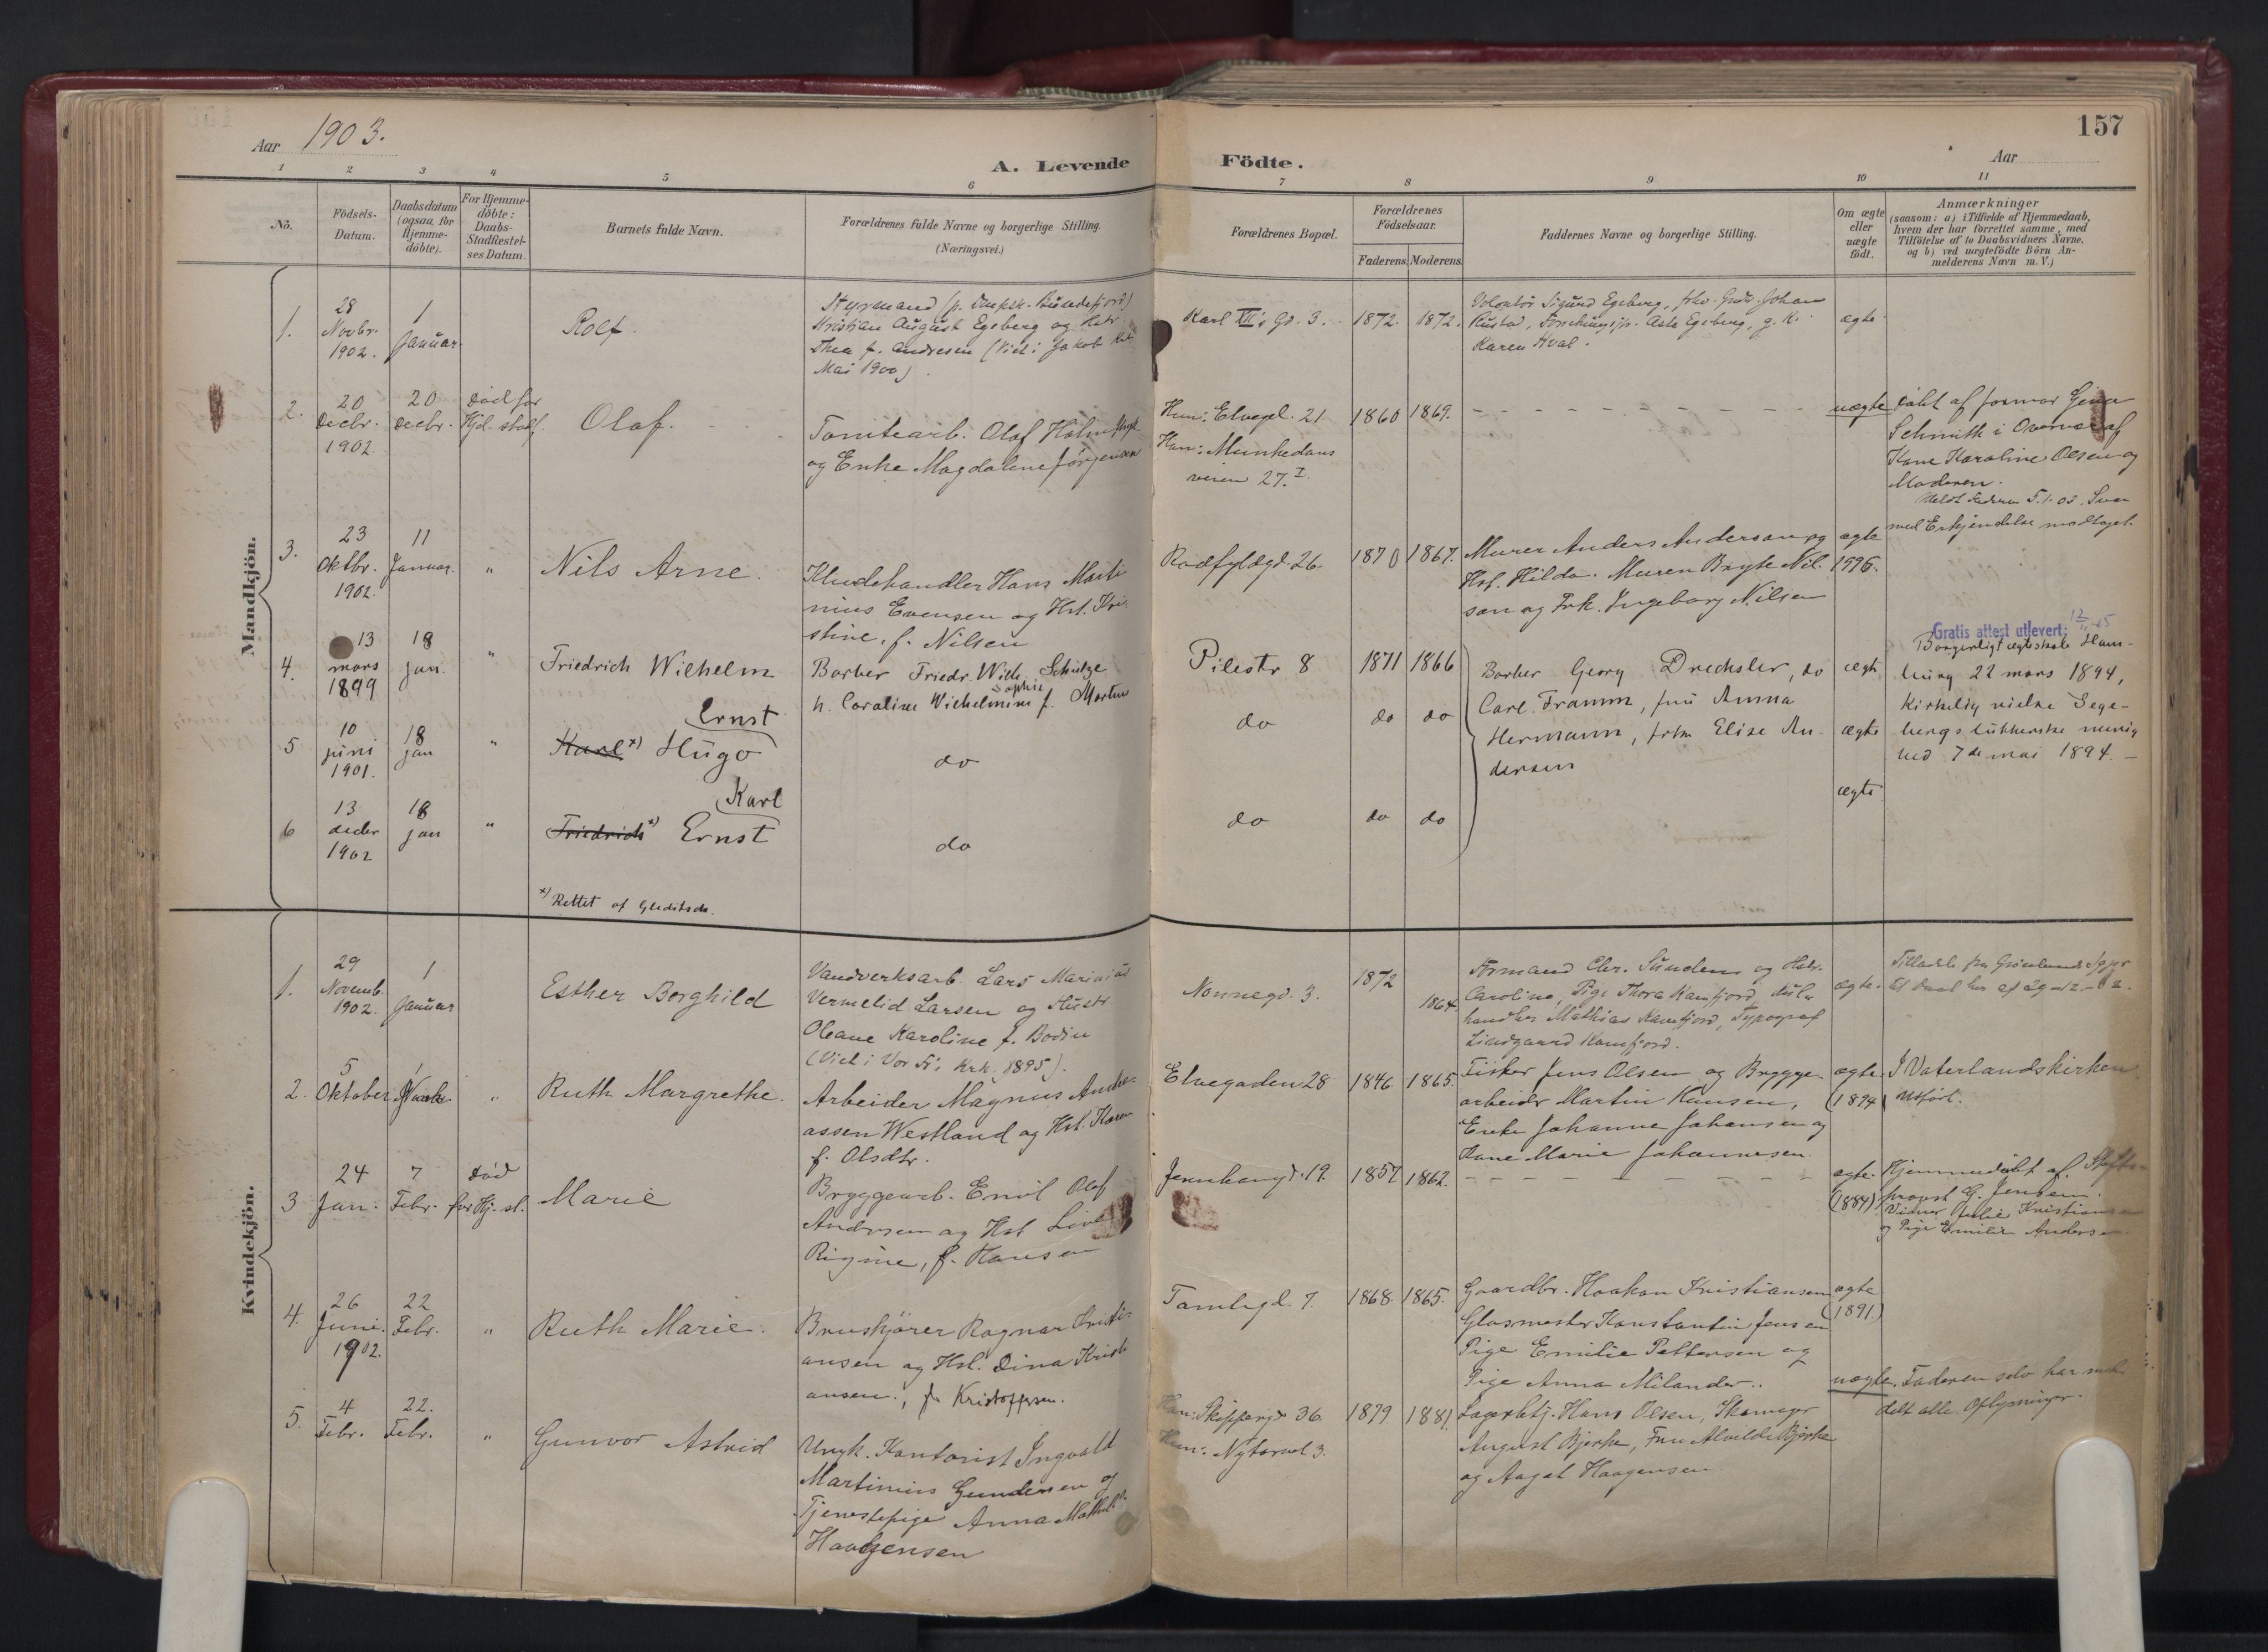 157
Aar 1903.
Aar
A. Levende Födte.
1 2 3 4 5 6 7 8 9 10 11
No.
Födsels-
Datum.
Daabsdatum
(ogsaa for
Hjemme-
döbte).
For Hjemme-
döbte:
Daabs-
Stadfæstel-
ses Datum.
Barnets fulde Navn.
Forældrenes fulde Navne og borgerlige Stilling.
(Næringsvei.)
Forældrenes Bopæl.
Forældrenes
Födselsaar.
Faderens. Moderens.
Faddernes Navne og borgerlige Stilling.
Om ægte
eller
uægte
födt.
Anmærkninger
(saasom: a) i Tilfælde af Hjemmedaab,
hvem der har forrettet samme, med
Tilföielse af to Daabsvidners Navne,
og b) ved uægtefödte Börn An-
melderens Navn m. V.)
Mandkjön.
1.
28
Novbr.
1902.
1
Januar
Rolf.
Styrmand (p. dampsk.
Kristian August Egeberg og Hstr.
Thea f. Andresen (Viet i Jakob
Mai 1900).
Karl XII's Gd. 3.
1872. 1872.
Volontør Sigurd Egeberg, Johan
Rustad, Asta Egeberg, g. K.
Karen Hval.
ægte
2.
20
Decbr.
1902
20
Decbr.
død før
Hjd. stadf.
Olaf.
Tomtearb. Olaf Holm
og Enke Magdalene Jørgensen
Hun: Elvegd. 21
Han: Munkedams
veien 27.I
1860 1869.
uægte
døbt af Jormor Gina
Schmith i Overvær af
Kone Karoline Olsen og
Moderen.
Meldt Faderen 5.1.03. Svar
med Erkjendelse modtaget.
3.
23
Oktbr.
1902.
11
Januar.
"
Nils Arne.
Kludehandler Hans Marti
nius Evensen og Hst. Kri-
stine, f. Nilsen
Rødfyldgd. 26.
1870 1867.
Murer Anders Anderson og
Hsf. Hilda. Murer Bryte Nil-
son og Frk. Ingeborg Nilsen
ægte
1896.
4.
13
mars
1899
18
jan.
"
Friedrich Wilhelm
Barber Friedr. Wilh. Schütze
h. Caroline Wilhelmine Sophie f. Martens
Pilestr 8
1871 1866
Barber Georg Drechsler, do
Carl Framm, fru Anna
Hermann, frkn Elise An-
dersen
ægte
Gratis attest utlevert:
Borgerligt ægteskab Ham-
burg 22 mars 1894,
kirkelig vielse Sege-
bergs lutherske menig
hed 7de mai 1894. —
5
10
juni
1901.
18
jan
"
Ernst
Karl x) Hugo
do
do
do do
ægte
6
13
decbr
1902
18
jan
"
Karl
Friedrich x) Ernst
do
do
do do
ægte
x) Rettet af Gleditsch.
Kvindekjön.
1.
29
Novemb.
1902.
1
Januar
Esther Borghild
Vandverksarb. Lars Marinius
Vermelid Larsen og Hustr.
Oleane Karoline f. Bodin
(Viet i Vor Fr. Krk. 1895).
Nonnegd. 3.
1872
1864.
Formand Chr. Sunden og Hstr.
Caroline, Pige Thora Kamfjord,
handler Mathias Kamfjord, Typograf
Lindgaard Kamfjord.
ægte.
2.
5
Oktober
"
Ruth Margrethe.
Arbeider Magnus Andre-
assen Westland og Hst. Karen
f. Olsdtr.
Elvegaden 28
1846. 1865.
Fisker Jens Olsen og Brygge
arbeider Martin Hansen,
Enke Johanne Johansen og
Kone Marie Johannesen
ægte
(1894)
I Vaterlandskirken
utført.
3
24
Jan.
7
Febr.
død
før Hj. st.
Marie
Bryggearb. Emil Olaf
Andersen og Hst Live
Rigine, f. Hansen
Jernbangd. 19.
1857 1862.
ægte.
(1884)
Hjemmedøbt af Stifts-
provst G. Jensen.
Vidner Julie Kristiansen
og Pige Emilie Andersen
4.
26
Juni.
1902.
22
Febr.
"
Ruth Marie.
Bruskjører Ragnar Kristi-
ansen og Hst. Dina Kristi
ansen., f. Kristoffersen.
Tomtegd. 7.
1868. 1865.
Gaardbr. Haakon Kristiansen
Glasmester Konstantin Jensen
Pige Emilie Pettersen og
Pige Anna Milander.
ægte
(1891.)
5.
4
Febr.
22.
Febr.
"
Gunvor Astrid
Ungk. Kontorist Ingvald
Martinius Gundersen og
Tjenestepige Anna Mathilde
Haagensen
Han: Skippergd 36.
Hun: Nytorvet 3.
1879. 1881.
Lagerbetj. Hans Olsen, Skomager
August Bjerke, Fru Alvilde Bjerke
og Aagot Haagensen
uægte.
Faderen selv har med-
delt alle Oplysninger.